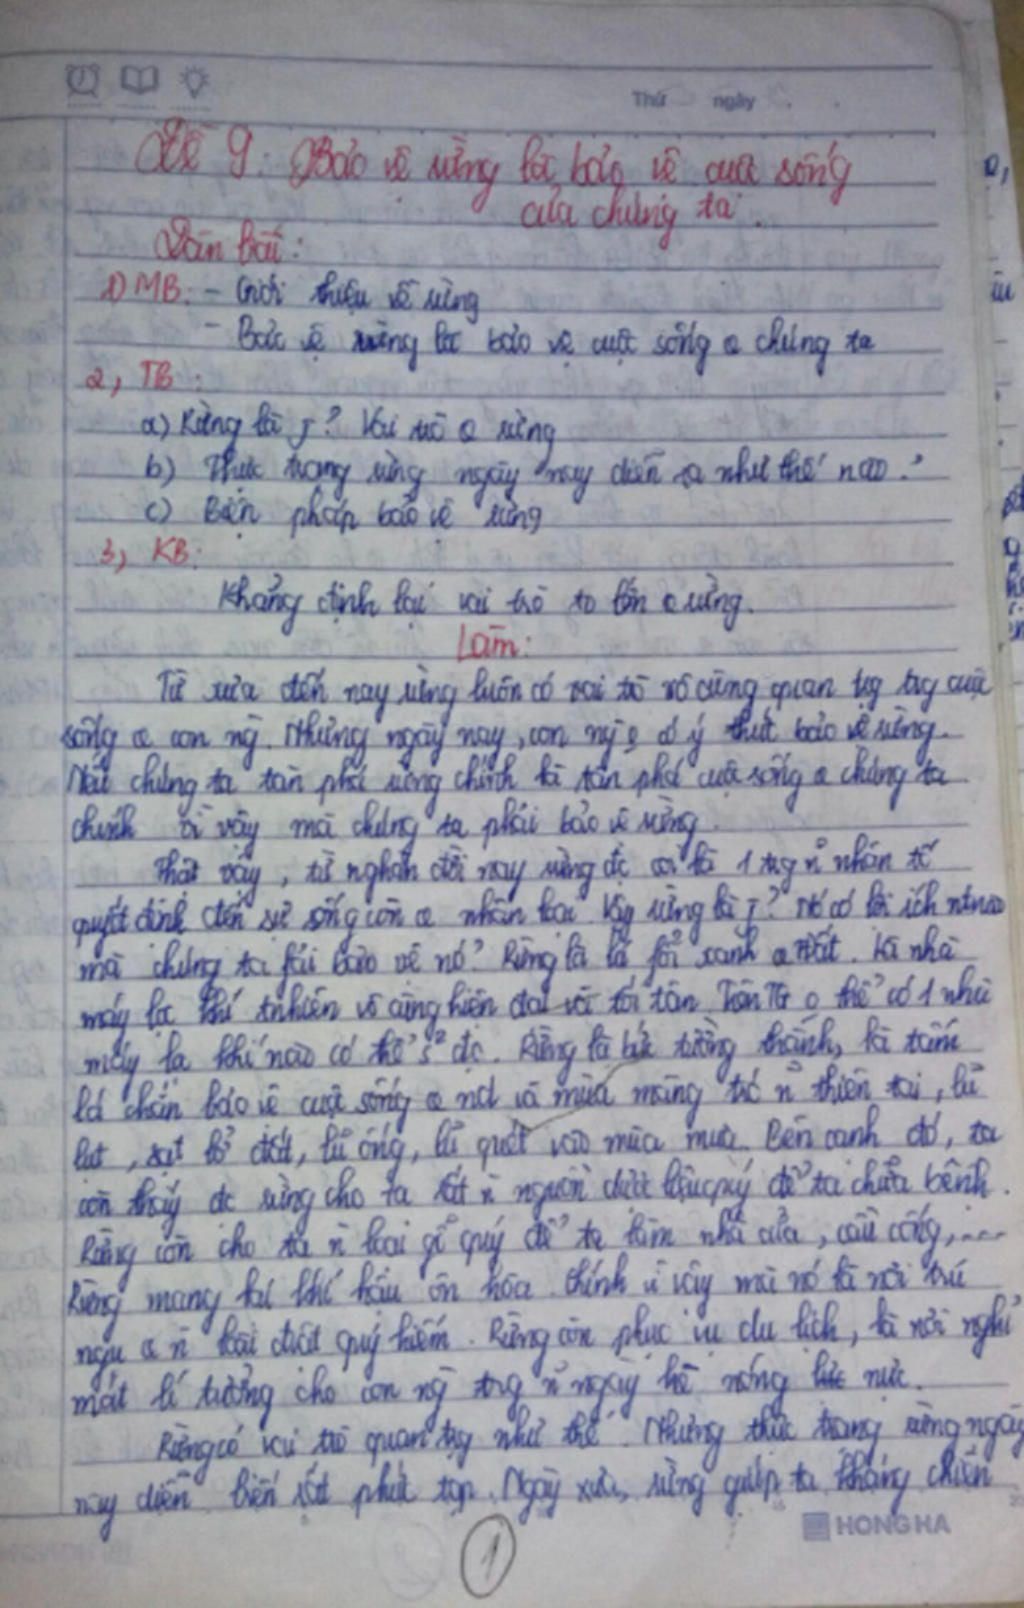 Thứ ngày
Đề 9: Bảo vệ rừng là bảo vệ cuộc sống
của chúng ta.
Dàn bài:
1) MB: - Giới thiệu về rừng
- Bảo vệ rừng là bảo vệ cuộc sống a chúng ta
2, TB:
a) Rừng là j? Vai trò a rừng
b) Thực trạng rừng ngày nay diễn ra như thế nào?
c) Biện pháp bảo vệ rừng
3, KB:
Khẳng định lại vai trò to lớn a rừng.
Làm:
Từ xưa đến nay rừng luôn có vai trò vô cùng quan trg trg cuộc
sống a con ng. Nhưng ngày nay, con ng có ý thức bảo vệ rừng.
Nếu chúng ta tàn phá rừng chính là tàn phá cuộc sống a chúng ta
chính vì vậy mà chúng ta phải bảo vệ rừng.
Thật vậy, từ nghàn đời nay rừng đc coi là 1 trg n~ nhân tố
quyết định đến sự sống còn a nhân loại. Vậy rừng là j? Nó có lợi ích ntnào
mà chúng ta fải bảo vệ nó? Rừng là lá fổi xanh a TĐất. Là nhà
máy lọc khí tnhiên vô cùng hiện đại và tối tân. Trên TG o thể có 1 nhà
máy lọc khí nào có thể s² đc. Rừng là bức tường thành, là tấm
lá chắn bảo vệ cuộc sống a nd và mùa màng trc n~ thiên tai, lũ
lụt, sạt lở đất, lũ ống, lũ quét vào mùa mưa. Bên cạnh đó, ta
còn thấy đc rừng cho ta rất n~ nguồn dược liệu quý để ta chữa bệnh.
Rừng còn cho ta n~ loại gỗ quý để ta làm nhà cửa, cầu cống,...
Rừng mang lại khí hậu ôn hòa. Chính vì vậy mà nó là nơi trú
ngụ a n~ loài đvật quý hiếm. Rừng còn phục vụ du lịch, là nơi nghỉ
mát lí tưởng cho con ng trg n~ ngày hè nóng nực.
Rừng có vai trò quan trg như thế. Nhưng thực trạng rừng ngày
nay diễn biến rất phức tạp. Ngày xưa, rừng giúp ta kháng chiến
HONG HA
1